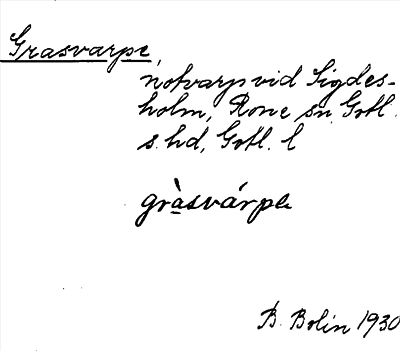 Grasvarpe,
notvarp vid Sigdes-
holm, Rone sn. Gotl.
s. hd, Gotl. l
gràsvárpe
B. Bolin 1930